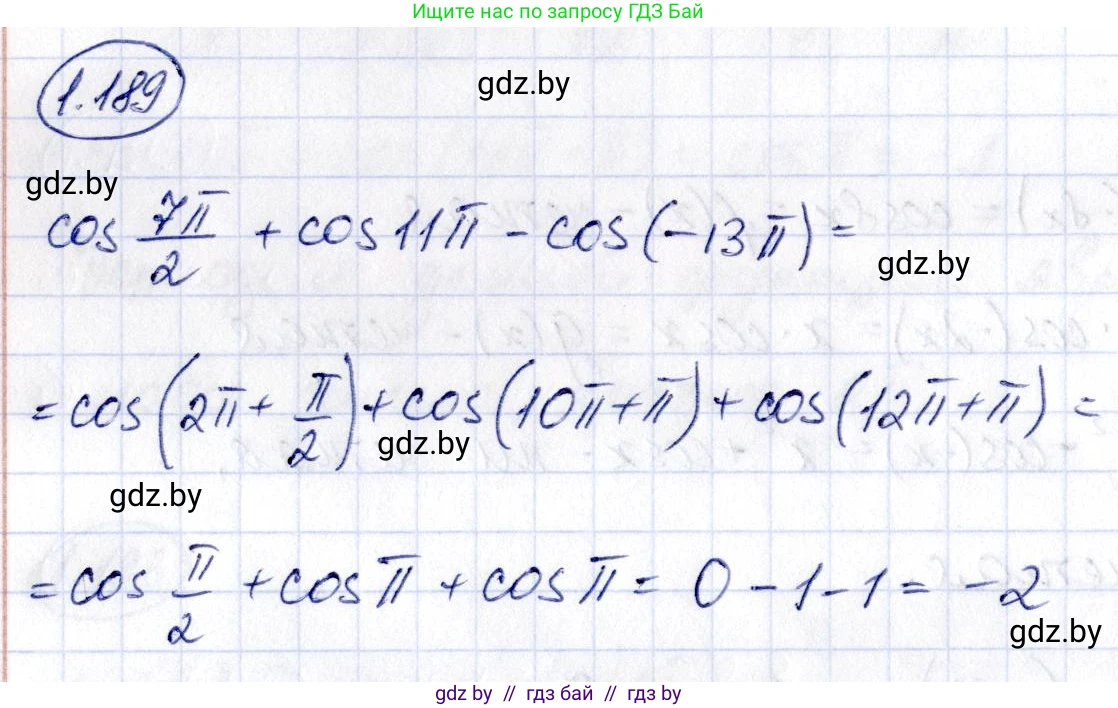 Ищите нас по запросу ГДЗ Бай
1.189
gdz.by
gdz.by
cos 7π/2 + cos 11π - cos(-13π) =
gdz.by
= cos(2π + π/2) + cos(10π + π) + cos(12π + π) =
gdz.by
gdz.by
= cos π/2 + cos π + cos π = 0 - 1 - 1 = -2
gdz.by
gdz.by // гдз бай // гдз by